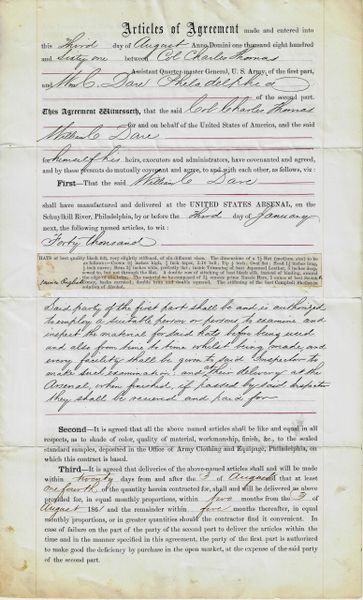 Articles of Agreement made and entered into
this Third day of August Anno Domini one thousand eight hundred
and sixty one between Col Charles Thomas
Assistant Quartermaster General, U. S. Army, of the first part,
and Wm C. Dare Philadelphia
of the second part.
This Agreement Witnesseth, that the said Col Charles Thomas
for and on behalf of the United States of America, and the said
William C Dare
for himself his heirs, executors and administrators, have covenanted and agreed,
and by these presents do mutually covenant and agree, to and with each other, as follows, viz:
First—That the said William C Dare
shall have manufactured and delivered at the UNITED STATES ARSENAL, on the
Schuylkill River, Philadelphia, by or before the Third day of January
next, the following named articles, to wit:
Forty thousand
HATS of best quality black felt, very slightly stiffened, of six different sizes. The dimensions of a 7⅛ Hat (medium size) to be
as follows:
Said party of the first part shall be and is authorized
to employ a suitable person or persons to examine and
inspect the material for said hats before being used
and also from time to time whilst being made, and
every facility shall be given to said Inspector to
make such examination; and at their delivery at the
Arsenal, when finished, if passed by said Inspector
they shall be received and paid for
Second—It is agreed that all the above named articles shall be like and equal in all
respects, as to shade of color, quality of material, workmanship, finish, &c., to the sealed
standard samples, deposited in the Office of Army Clothing and Equipage, Philadelphia, on
which this contract is based.
Third—It is agreed that deliveries of the above named articles shall and will be made
within twenty days from and after the 3 of August that at least
one fourth of the quantity herein contracted for, shall and will be delivered as above
provided for, in equal monthly proportions, within two months from the 3 of
August 1861 and the remainder within five months thereafter, in equal
monthly proportions, or in greater quantities should the contractor find it convenient. In
case of failure on the part of the party of the second part to deliver the articles within the
time and in the manner specified in this agreement, the party of the first part is authorized
to make good the deficiency by purchase in the open market, at the expense of the said party
of the second part.